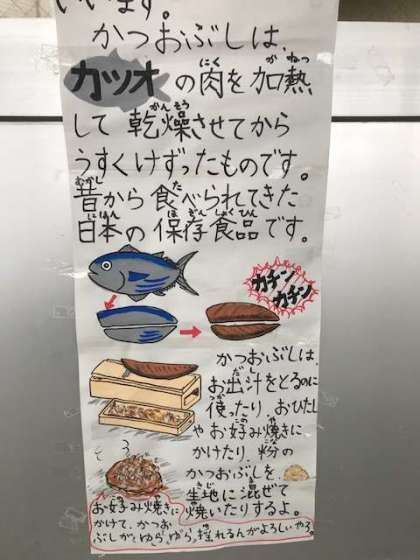 います。
かつおぶしは、
カツオの肉を加熱
して乾燥させてから
うすくけずったものです。
昔から食べられてきた
日本の保存食品です。
カチン
カチン
かつおぶしは、
お出汁をとるのに
使ったり、おひたし
やお好み焼きに
かけたり、粉の
かつおぶしを、
生地に混ぜて
焼いたりするよ。
お好み焼きに
かけて、かつお
ぶしがゆらゆら揺れるんがよろしいやろ